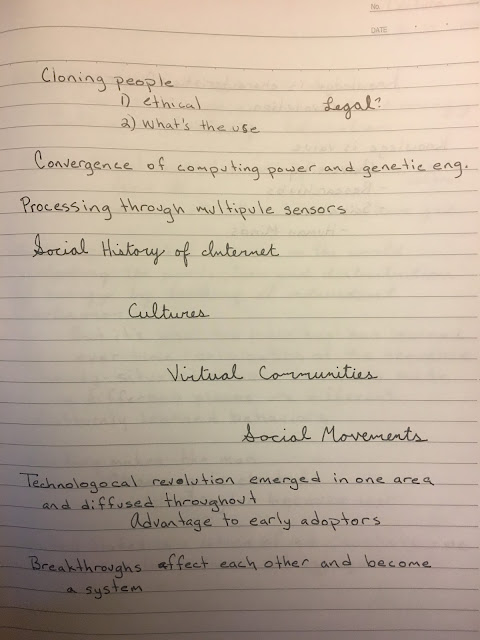 No.
DATE
Cloning people
1) ethical Legal?
2) What's the use
Convergence of computing power and genetic eng.
Processing through multipule sensors
Social History of Internet
Cultures
Virtual Communities
Social Movements
Technologocal revolution emerged in one area
and diffused throughout
Advantage to early adoptors
Breakthroughs affect each other and become
a system